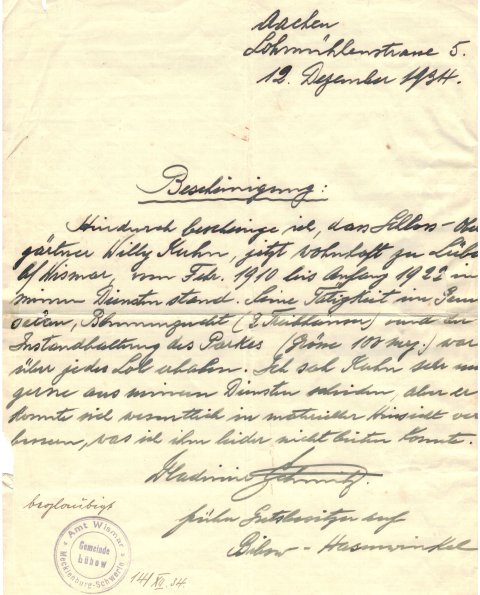 Aachen
Lohmühlenstrasse 5.
12. Dezember 1934.
Bescheinigung:
Hierdurch bescheinige ich, das Schloss-Ober
gärtner Willy Kuhn, jetzt wohnhaft zu Lübo
b/ Wismar, vom Febr. 1910 bis Anfang 1922 in
meinen Diensten stand. Seine Tätigkeit im
Blumenzucht (3 Treibhäuser) und der
Instandhaltung des Parkes (Grösse 100 mg.) war
über jedes Lob erhaben. Ich sah Kuhn sehr un
gerne aus meinen Diensten scheiden, aber er
konnte sich wesentlich in materieller Hinsicht ver
bessern, was ich ihm leider nicht bieten konnte.
Wladimir Schmitz.
früher Gutsbesitzer auf
Bibow - Hasenwinkel
beglaubigt
Amt Wismar
Gemeinde
Lübow
Mecklenburg-Schwerin
14/XII. 34.